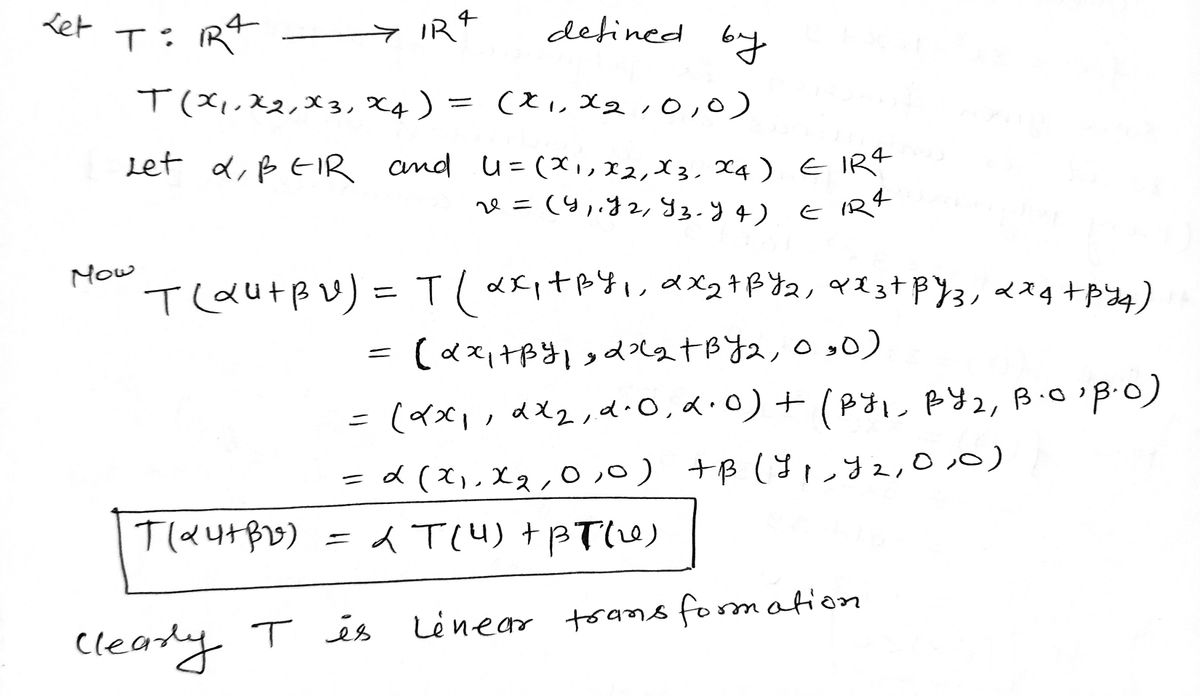 Let T : ℝ⁴ ⟶ ℝ⁴ defined by
T(x₁, x₂, x₃, x₄) = (x₁, x₂, 0, 0)
Let α, β ∈ ℝ and u = (x₁, x₂, x₃, x₄) ∈ ℝ⁴
v = (y₁, y₂, y₃, y₄) ∈ ℝ⁴
Now T(αu+βv) = T(αx₁+βy₁, αx₂+βy₂, αx₃+βy₃, αx₄+βy₄)
= (αx₁+βy₁, αx₂+βy₂, 0, 0)
= (αx₁, αx₂, α·0, α·0) + (βy₁, βy₂, β·0, β·0)
= α(x₁, x₂, 0, 0) + β(y₁, y₂, 0, 0)
T(αu+βv) = α T(u) + βT(v)
Clearly T is Linear transformation